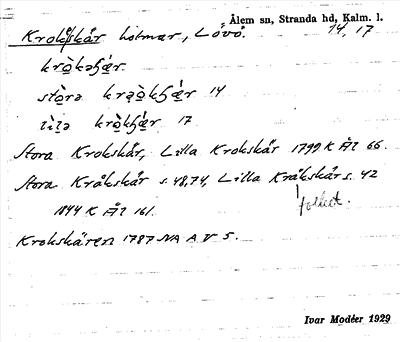 Ålem sn, Stranda hd, Kalm. l.
Krokskär holmar, Lövö. 14, 17
14
17
Stora Krokskär, Lilla Krokskär 1799 K Ål 66.
Stora Kråkskär s. 48, 74, Lilla Kråkskär s. 42
1844 K Ål 161. folket.
Krokskären 1787 NA A V 5.
Ivar Modéer 1929